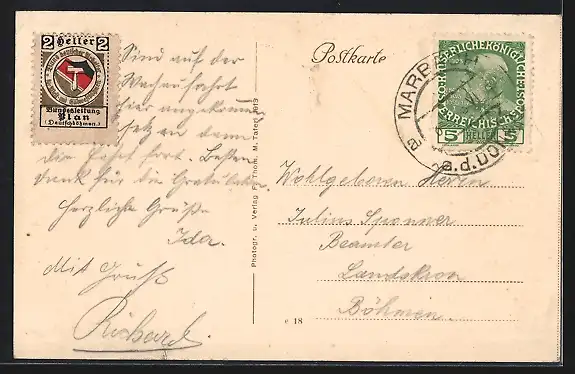 2 Heller 2
Bundesleitung
Plan
(Deutschböhmen)
Sind auf der
hier angekommen
setzt an dann
die Fahrt fort. Besten
Dank für die Gratulat.
Herzliche Grüße
Ida.
Mit Gruß
Richard.
Photogr. u. Verlag Fr. Thom. M. Tafern 1913
Postkarte
5 HELLER 5
MARBACH
a. d. DONAU
Wohlgeboren Herrn
Julius Sponner
Beamter
Landskron
Böhmen.
e 18